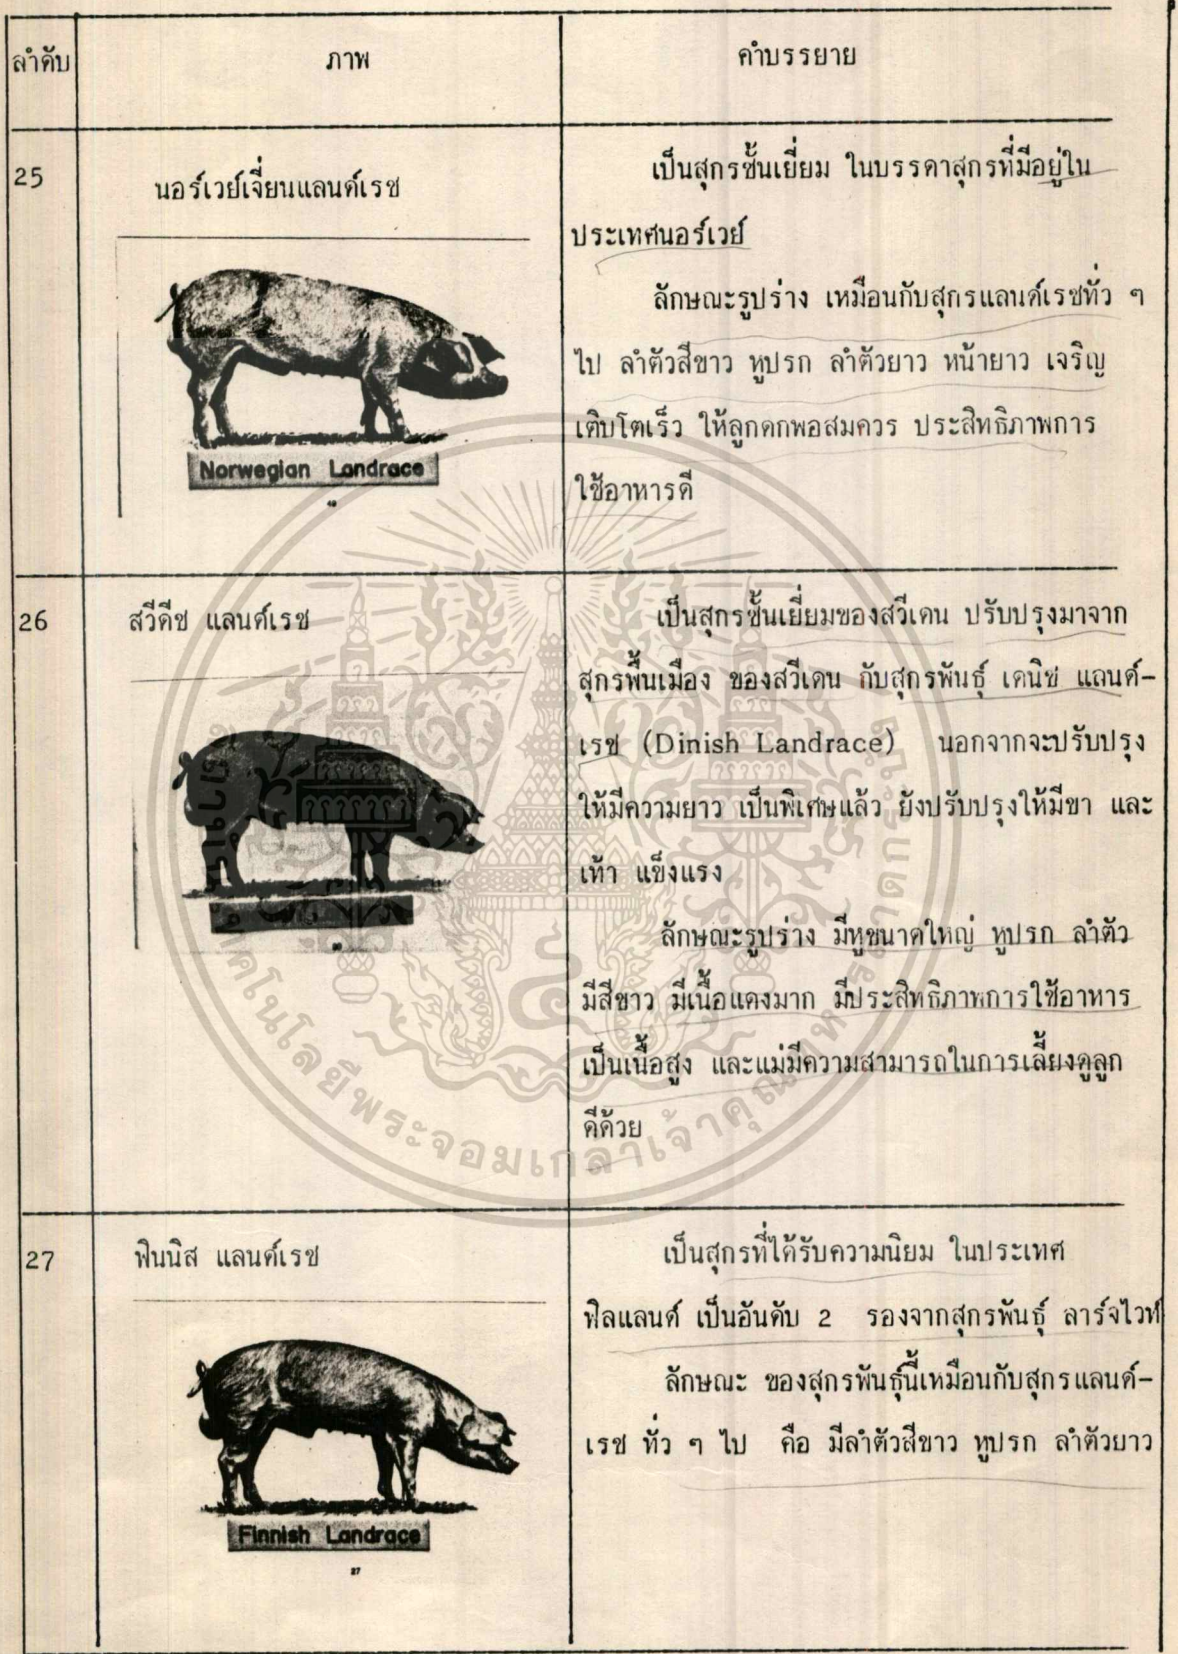 ลำดับ ภาพ คำบรรยาย
25 นอร์เวย์เจี่ยนแลนด์เรซ
Norwegian Landrace
เป็นสุกรชั้นเยี่ยม ในบรรดาสุกรที่มีอยู่ใน
ประเทศนอร์เวย์
ลักษณะรูปร่าง เหมือนกับสุกรแลนด์เรซทั่ว ๆ
ไป ลำตัวสีขาว หูปรก ลำตัวยาว หน้ายาว เจริญ
เติบโตเร็ว ให้ลูกดกพอสมควร ประสิทธิภาพการ
ใช้อาหารดี
26 สวีดีช แลนด์เรซ
เป็นสุกรชั้นเยี่ยมของสวีเดน ปรับปรุงมาจาก
สุกรพื้นเมือง ของสวีเดน กับสุกรพันธุ์ เดนิช แลนด์-
เรซ (Dinish Landrace) นอกจากจะปรับปรุง
ให้มีความยาว เป็นพิเศษแล้ว ยังปรับปรุงให้มีขา และ
เท้า แข็งแรง
ลักษณะรูปร่าง มีหูขนาดใหญ่ หูปรก ลำตัว
มีสีขาว มีเนื้อแดงมาก มีประสิทธิภาพการใช้อาหาร
เป็นเนื้อสูง และแม่มีความสามารถในการเลี้ยงดูลูก
ดีด้วย
27 ฟินนิส แลนด์เรซ
Finnish Landrace
27
เป็นสุกรที่ได้รับความนิยม ในประเทศ
ฟิลแลนด์ เป็นอันดับ 2 รองจากสุกรพันธุ์ ลาร์จไวท์
ลักษณะ ของสุกรพันธุ์นี้เหมือนกับสุกรแลนด์-
เรซ ทั่ว ๆ ไป คือ มีลำตัวสีขาว หูปรก ลำตัวยาว